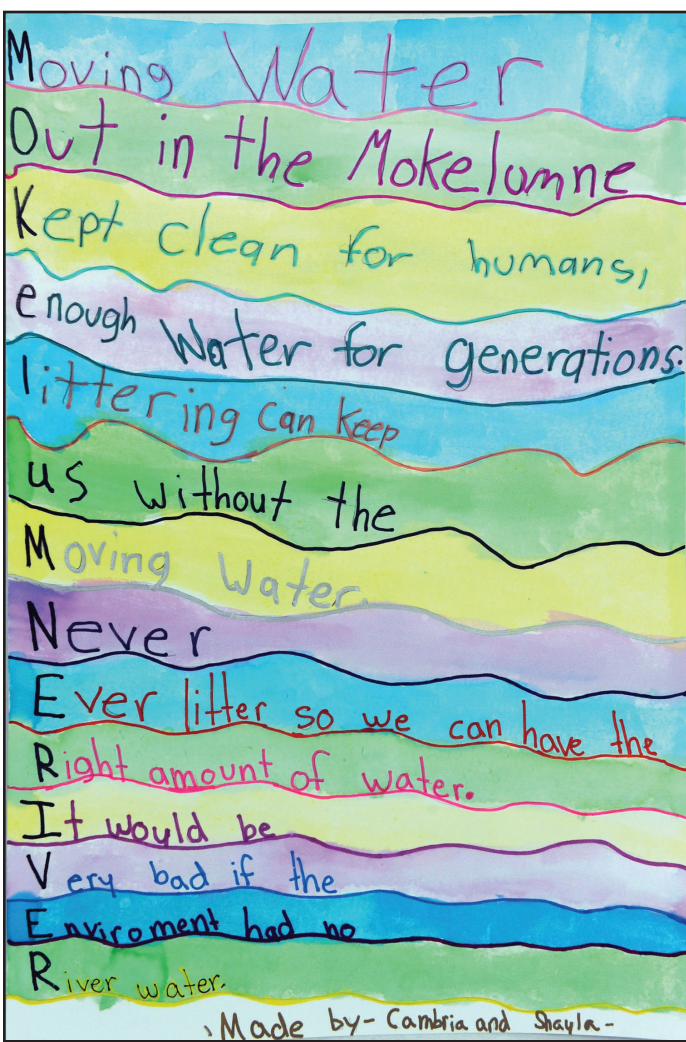 Moving Water
Out in the Mokelumne
Kept clean for humans,
enough Water for generations.
littering can keep
us without the
Moving Water.
Never
Ever litter so we can have the
Right amount of water.
It would be
Very bad if the
Enviroment had no
River water.
Made by- Cambria and Shayla-